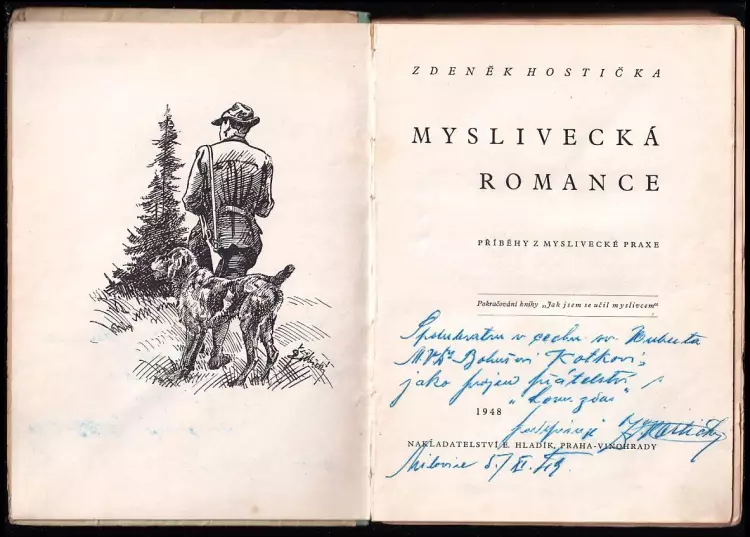 ZDENĚK HOSTIČKA
MYSLIVECKÁ
ROMANCE
PŘÍBĚHY Z MYSLIVECKÉ PRAXE
Pokračování knihy „Jak jsem se učil myslivcem“
v cechu sv. Huberta
MVDr Bohušovi Kotkovi
jako projev přátelství
„Lovu zdar“
1948
NAKLADATELSTVÍ E. HLADÍK, PRAHA-VINOHRADY
Milovice 5./XI.